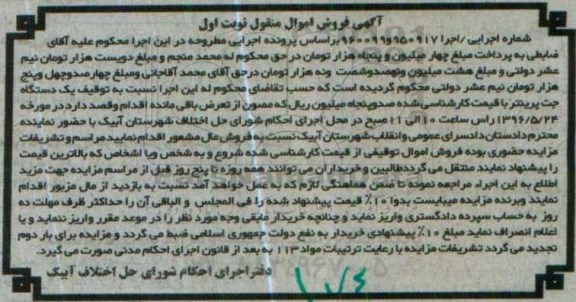 آگهی فروش اموال منقول نوبت اول
شماره اجرایی /اجرا ۹۶۰۰۰۹۹و۹۵۰۹۱۷ براساس پرونده اجرایی مطروحه در این اجرا محکوم علیه آقای
ضابطی به پرداخت مبلغ چهار میلیون و پنجاه هزار تومان در حق محکوم له محمد منجم و مبلغ دویست هزار تومان نیم
عشر دولتی و مبلغ هشت میلیون ونهصدوشصت ونه هزار تومان درحق آقای محمد آقاجانی ومبلغ چهارصدوچهل وپنج
هزار تومان نیم عشر دولتی محکوم گردیده است که حسب تقاضای محکوم له این اجرا نسبت به توقیف یک دستگاه
جت پرینتر با قیمت کارشناسی شده صدوپنجاه میلیون ریال که مصون از تعرض باقی مانده اقدام وقصد دارد در مورخه
۱۳۹۶/۵/۲۴ راس ساعت ۱۰ الی ۱۱ صبح در محل اجرای احکام شورای حل اختلاف شهرستان آبیک با حضور نماینده
محترم دادستان دادسرای عمومی وانقلاب شهرستان آبیک نسبت به فروش مال مشهور اقدام نماید مراسم و تشریفات
مزایده حضوری بوده فروش اموال توقیفی از قیمت کارشناسی شده شروع و به شخص ویا اشخاص که بالاترین قیمت
را پیشنهاد نمایند منتقل می گردد طالبین و خریداران می توانند همه روزه تا پنج روز قبل از مراسم مزایده جهت مزید
اطلاع به این اجراء مراجعه نموده تا ضمن هماهنگی لازم که به عمل خواهد آمد نسبت به بازدید از مال مزبور اقدام
نمایند وبرنده مزایده میبایست بدوا ۱۰٪ قیمت پیشنهاد شده را فی المجلس و الباقی آن را حداکثر ظرف مهلت ده
روز به حساب سپرده دادگستری واریز نماید و چنانچه خریدار مابقی وجه مورد نظر را در موعد مقرر واریز ننماید و یا
اعلام انصراف نماید مبلغ ۱۰٪ پیشنهادی خریدار به نفع دولت جمهوری اسلامی ضبط می گردد و مزایده برای بار دوم
تجدید می گردد تشریفات مزایده با رعایت ترتیبات مواد ۱۱۳ به بعد از قانون اجرای احکام مدنی صورت می گیرد.
دفتر اجرای احکام شورای حل اختلاف آبیک